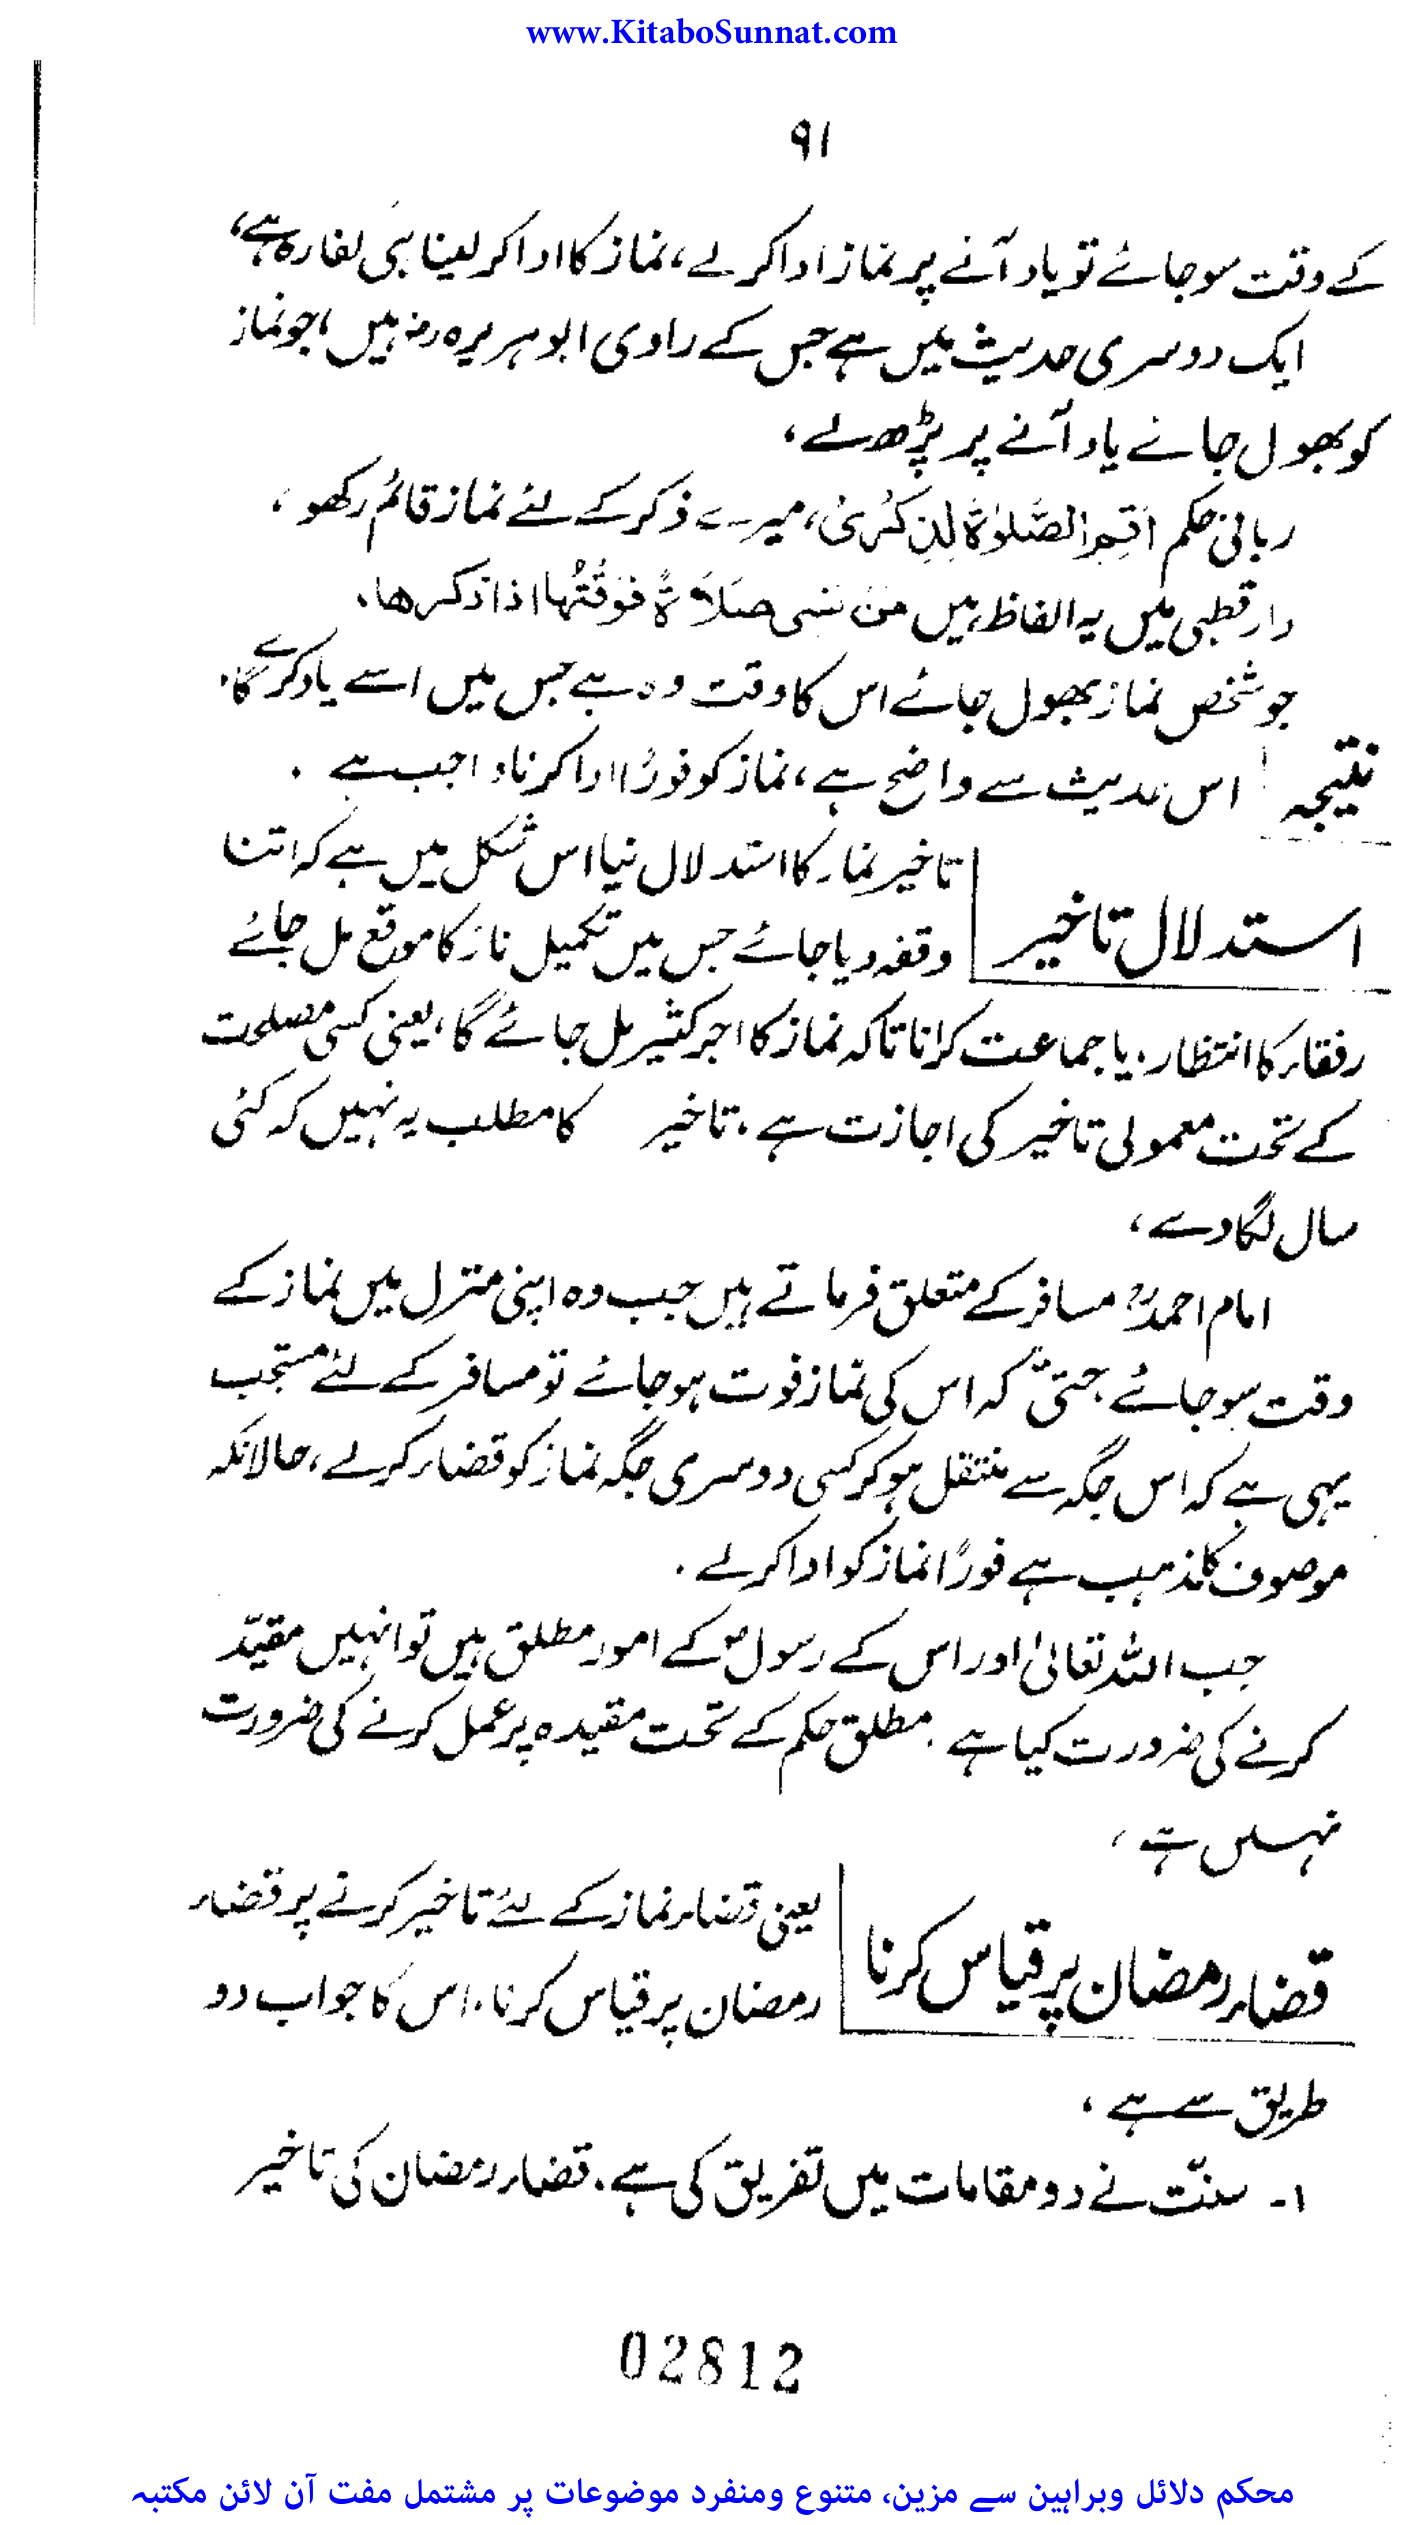 www.KitaboSunnat.com
۹۱
کے وقت سو جائے تو یاد آنے پر نماز ادا کر لے، نماز کا ادا کر لینا ہی کفارہ ہے،
ایک دوسری حدیث میں ہے جس کے راوی ابوہریرہ رضہ ہیں، جو نماز
کو بھول جائے یاد آنے پر پڑھ لے،
ربانی حکم اَقِمِ الصَّلوٰةَ لِذِکْرِیْ، میرے ذکر کے لئے نماز قائم رکھو،
دار قطنی میں یہ الفاظ ہیں من نسی صَلاَةً فوَقْتُها اذا ذکرها.
جو شخص نماز بھول جائے اس کا وقت وہ ہے جس میں اسے یاد کرے گا.
نتیجہ اس حدیث سے واضح ہے، نماز کو فورًا ادا کرنا واجب ہے.
تاخیر نماز کا استدلال نیا اس شکل میں ہے کہ اتنا
استدلال تاخیر وقفہ دیا جائے جس میں تکمیل نماز کا موقع مل جائے
رفقاء کا انتظار. یا جماعت کرانا تاکہ نماز کا اجر کثیر مل جائے گا، یعنی کسی مصلحت
کے تحت معمولی تاخیر کی اجازت ہے. تاخیر کا مطلب یہ نہیں کہ کئی
سال لگا دے،
امام احمدؒ مسافر کے متعلق فرماتے ہیں جب وہ اپنی منزل میں نماز کے
وقت سو جائے حتیّٰ کہ اس کی نماز فوت ہو جائے تو مسافر کے لئے مستحب
یہی ہے کہ اس جگہ سے منتقل ہو کر کسی دوسری جگہ نماز کو قضاء کر لے، حالانکہ
موصوف کا مذہب ہے فورًا نماز کو ادا کر لے.
جب اللہ تعالیٰ اور اس کے رسولؐ کے امور مطلق ہیں تو انہیں مقیّد
کرنے کی ضرورت کیا ہے. مطلق حکم کے تحت مقیدہ پر عمل کرنے کی ضرورت
نہیں ہے،
یعنی قضاء نماز کے لئے تاخیر کرنے پر قضاء
قضاء رمضان پر قیاس کرنا رمضان پر قیاس کرنا. اس کا جواب دو
طریق سے ہے،
۱۔ سنّت نے دو مقامات میں تفریق کی ہے. قضاء رمضان کی تاخیر
02812
محکم دلائل وبراہین سے مزین، متنوع ومنفرد موضوعات پر مشتمل مفت آن لائن مکتبہ